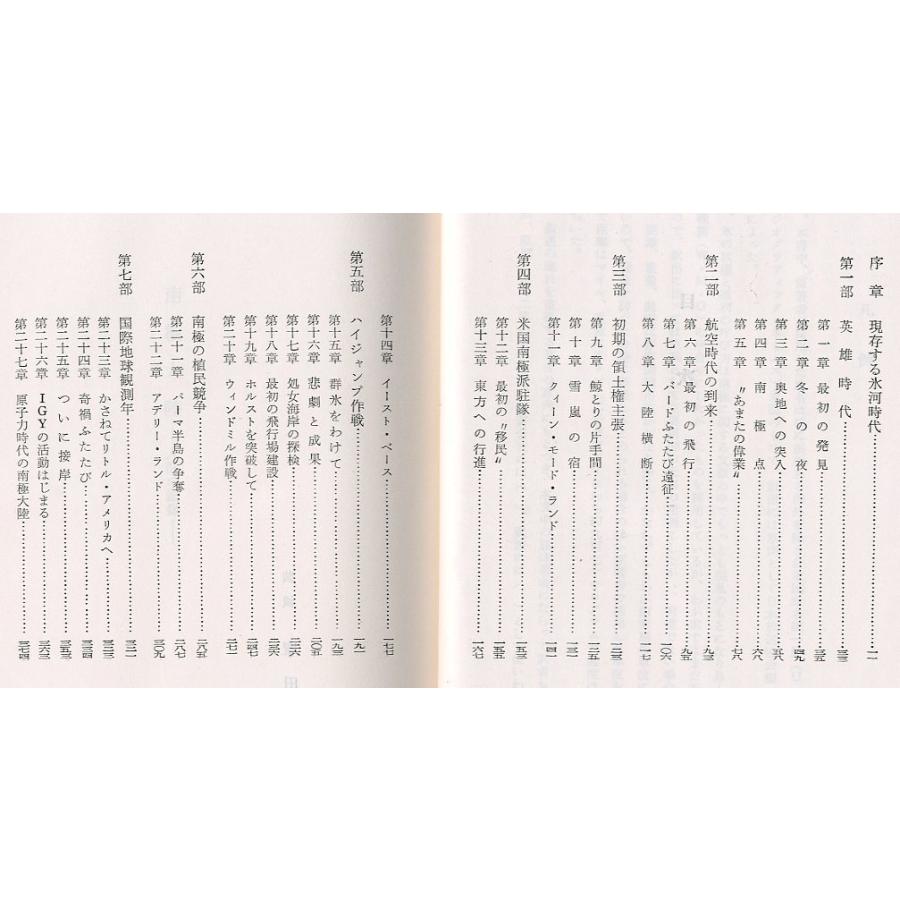 序章 現存する氷河時代……一一
第一部 英雄時代……三三
第一章 最初の発見……三五
第二章 冬の夜……四九
第三章 奥地への突入……五八
第四章 南極点……六八
第五章 〝あまたの偉業〟……七八
第二部 航空時代の到来……九三
第六章 最初の飛行……九五
第七章 バードふたたび遠征……一〇六
第八章 大陸横断……一一七
第三部 初期の領土権主張……一二三
第九章 鯨とりの片手間……一二五
第十章 雪嵐の宿……一三一
第十一章 クィーン・モード・ランド……一四一
第四部 米国南極派駐隊……一五三
第十二章 最初の〝移民〟……一五五
第十三章 東方への行進……一六七
第十四章 イースト・ベース……一七七
第五部 ハイジャンプ作戦……一九一
第十五章 群氷をわけて……一九三
第十六章 悲劇と成果……二〇五
第十七章 処女海岸の探検
第十八章 最初の飛行場建設
第十九章 ホルストを突破して……二四七
第二十章 ウィンドミル作戦……二七一
第六部 南極の植民競争……二八五
第二十一章 パーマ半島の争奪……二八七
第二十二章 アデリー・ランド……三〇九
第七部 国際地球観測年……三二一
第二十三章 かさねてリトル・アメリカへ……三二三
第二十四章 奇禍ふたたび……三三四
第二十五章 ついに接岸……三五三
第二十六章 IGYの活動はじまる……三六三
第二十七章 原子力時代の南極大陸……三七四